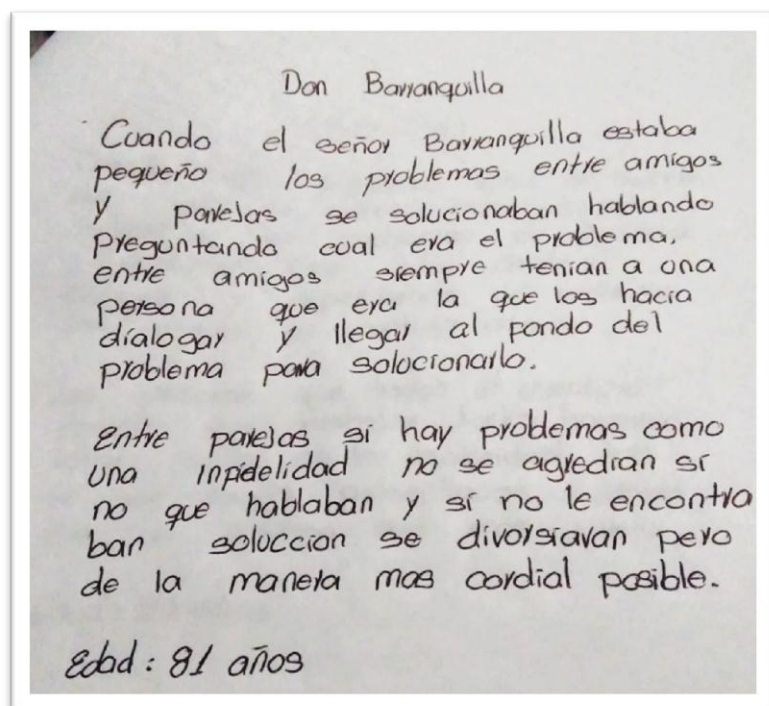 Don Barranquilla
Cuando el señor Barranquilla estaba
pequeño los problemas entre amigos
y parejas se solucionaban hablando
preguntando cual era el problema,
entre amigos siempre tenian a una
persona que era la que los hacia
dialogar y llegar al pondo del
problema para solucionarlo.
Entre parejas si hay problemas como
una inpidelidad no se agredian si
no que hablaban y si no le encontra
ban soluccion se divorsiavan pero
de la manera mas cordial posible.
Edad: 81 años